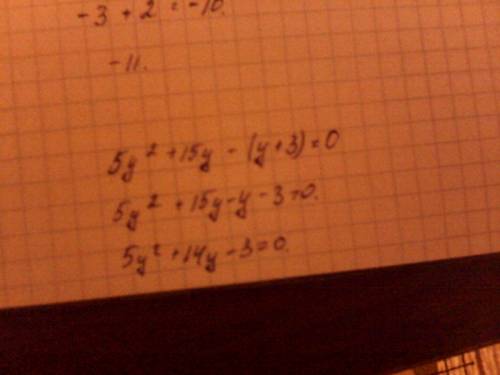 -3 + 2 = -10.
-11.
5y² + 15y - (y+3) = 0
5y² + 15y - y - 3 = 0.
5y² + 14y - 3 = 0.